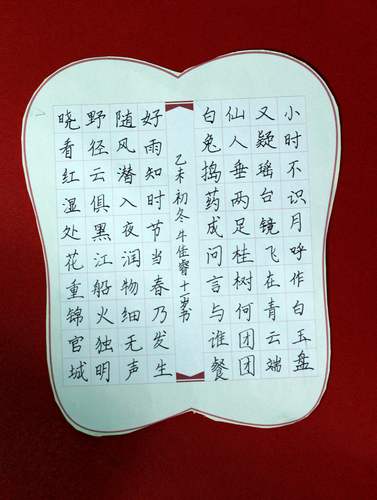 小时不识月呼作白玉盘
又疑瑶台镜飞在青云端
仙人垂两足桂树何团团
白兔捣药成问言与谁餐
乙未初冬牛佳睿十一岁书
好雨知时节当春乃发生
随风潜入夜润物细无声
野径云俱黑江船火独明
晓看红湿处花重锦官城